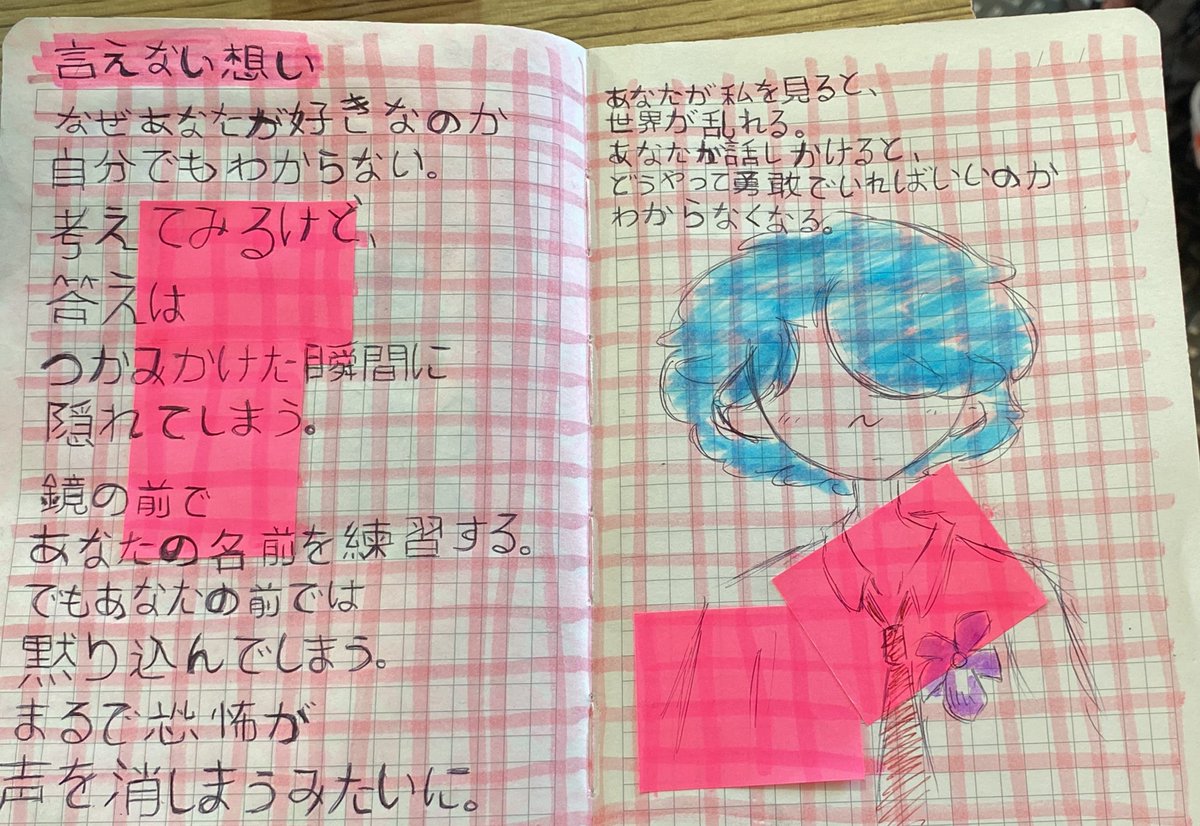 言えない想い
なぜあなたが好きなのか
自分でもわからない。
考えてみるけど、
答えは
つかみかけた瞬間に
隠れてしまう。
鏡の前で
あなたの名前を練習する。
でもあなたの前では
黙り込んでしまう。
まるで恐怖が
声を消しまうみたいに。
あなたが私を見ると、
世界が乱れる。
あなたが話しかけると、
どうやって勇敢でいればいいのか
わからなくなる。